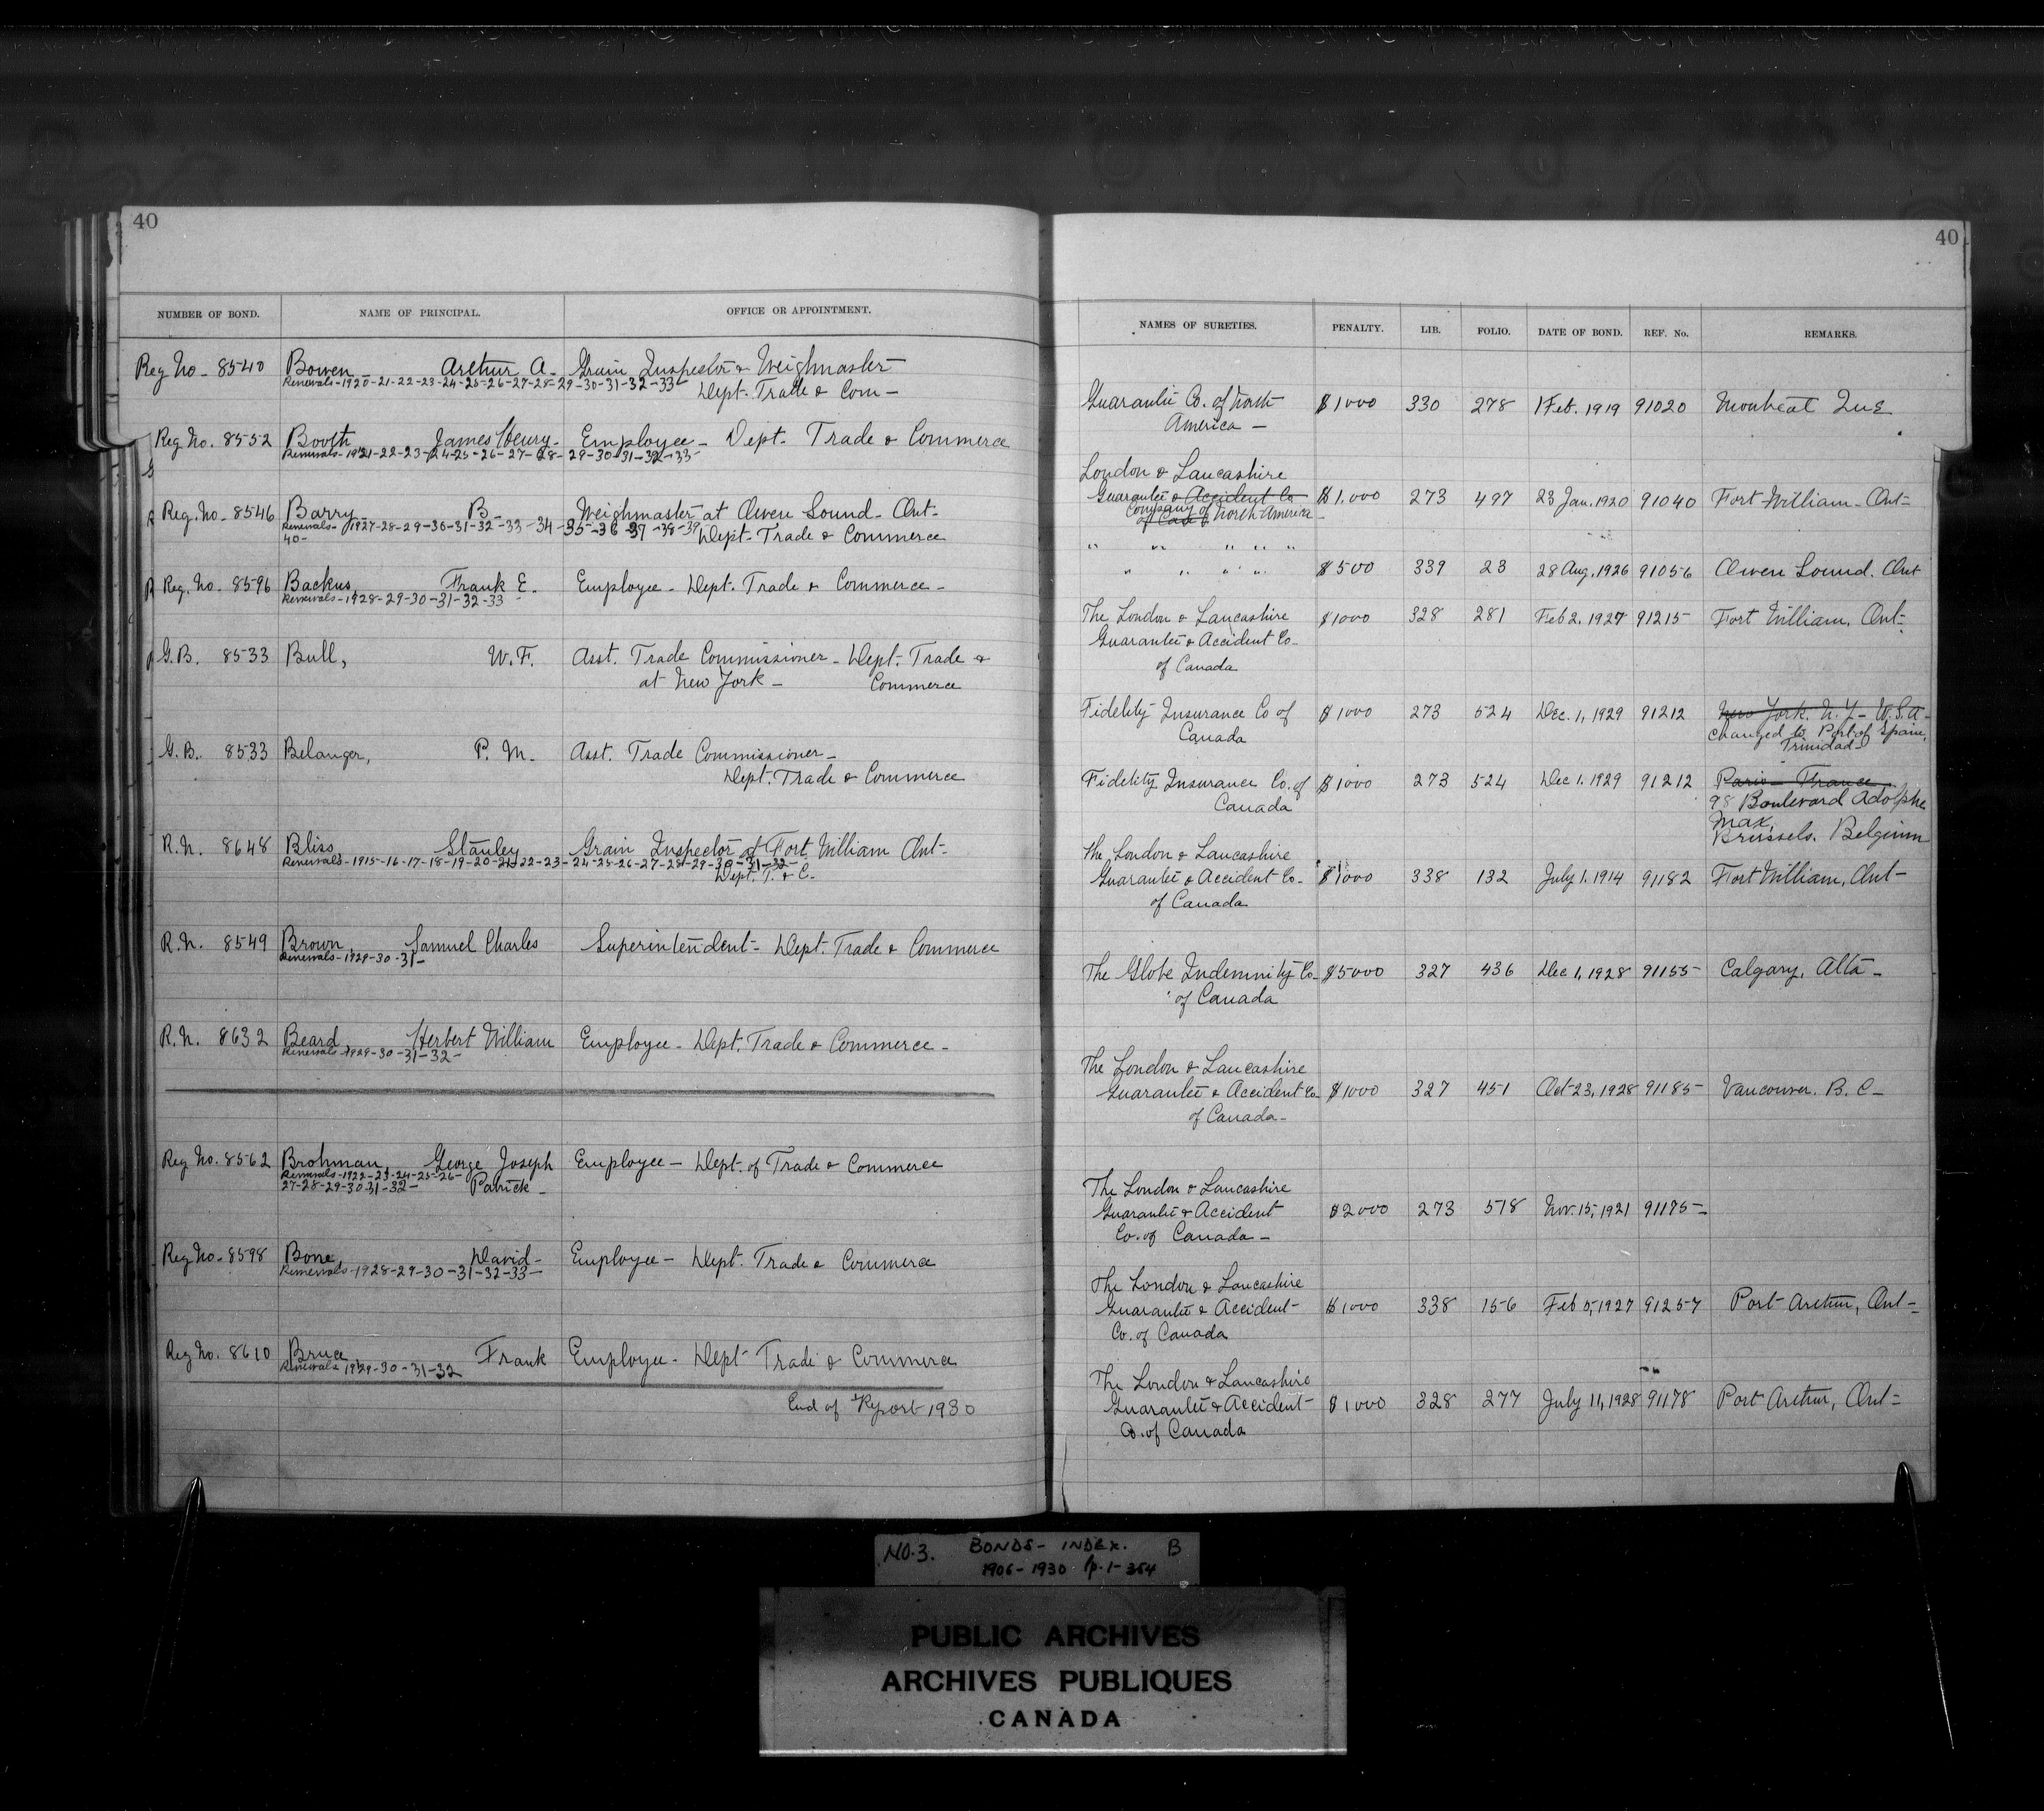 40
NUMBER OF BOND. NAME OF PRINCIPAL. OFFICE OR APPOINTMENT.
Reg No - 8540 Bowen - Arthur A. - Grain Inspector & Weighmaster
Renewals - 1920-21-22-23-24-25-26-27-28-29-30-31-32-33
Dept. Trade & Com -
Reg No. 8552 Booth, James Henry - Employee - Dept. Trade & Commerce
Renewals - 1921-22-23-24-25-26-27-28-29-30-31-32-33-
Reg. No - 8546 Barry - B - Weighmaster at Owen Sound - Ont -
Renewals - 1927-28-29-30-31-32-33-34-35-36-37-38-39
40 - Dept - Trade & Commerce
Reg. No. 8596 Backus, Frank E. Employee - Dept. Trade & Commerce -
Renewals - 1928-29-30-31-32-33
G.B. 8533 Bull, W. F. Asst. Trade Commissioner - Dept. Trade &
at New York - Commerce
G.B. 8533 Belanger, P. M. Asst. Trade Commissioner -
Dept. Trade & Commerce
R.N. 8648 Bliss, Stanley Grain Inspector at Fort William Ont -
Renewals - 1915-16-17-18-19-20-21-22-23-24-25-26-27-28-29-30-31-32-
Dept. T. & C.
R.N. 8549 Brown, Samuel Charles Superintendent - Dept. Trade & Commerce
Renewals - 1929-30-31-
R.N. 8632 Beard, Herbert William Employee - Dept. Trade & Commerce -
Renewals - 1929-30-31-32-
Reg No. 8562 Brohman, George Joseph Employee - Dept. of Trade & Commerce
Renewals - 1922-23-24-25-26-
27-28-29-30-31-32- Patrick -
Reg No - 8598 Bone, David - Employee - Dept. Trade & Commerce
Renewals - 1928-29-30-31-32-33-
Reg No. 8610 Bruce, Frank Employee - Dept Trade & Commerce
Renewals 1929-30-31-32
End of Report 1930
40
NAMES OF SURETIES. PENALTY. LIB. FOLIO. DATE OF BOND. REF. No. REMARKS.
Guarantee Co. of North $1000 330 278 1 Feb. 1919 91020 Montreal Que
America -
London & Lancashire
Guarantee & Accident Co $1,000 273 497 23 Jan. 1920 91040 Fort William - Ont -
Company of North America
of Can
" " " " "
" " " " $500 339 23 28 Aug, 1926 91056 Owen Sound. Ont
The London & Lancashire $1000 328 281 Feb 2, 1927 91215 - Fort William, Ont -
Guarantee & Accident Co -
of Canada
Fidelity Insurance Co of $1000 273 524 Dec. 1, 1929 91212 New York. N.Y - U.S.A -
Canada changed to Port of Spain,
Trinidad -
Fidelity Insurance Co. of $1000 273 524 Dec 1. 1929 91212 Paris - France
Canada 98 Boulevard Adolphe
Max,
Brussels. Belgium
The London & Lancashire
Guarantee & Accident Co - $1000 338 132 July 1. 1914 91182 Fort William, Ont -
of Canada
The Globe Indemnity Co - $5000 327 436 Dec 1, 1928 91155 - Calgary, Alta -
of Canada
The London & Lancashire
Guarantee & Accident Co $1000 327 451 Oct 23, 1928 91185 - Vancouver. B. C -
of Canada -
The London & Lancashire
Guarantee & Accident $2000 273 518 Nov. 15, 1921 91175 -
Co. of Canada -
The London & Lancashire
Guarantee & Accident - $1000 338 156 Feb 5, 1927 91257 Port Arthur, Ont -
Co. of Canada
The London & Lancashire
Guarantee & Accident - $1000 328 277 July 11, 1928 91178 Port Arthur, Ont -
Co. of Canada
NO. 3. BONDS - INDEX. B
1906 - 1930 p. 1-354
PUBLIC ARCHIVES
ARCHIVES PUBLIQUES
CANADA